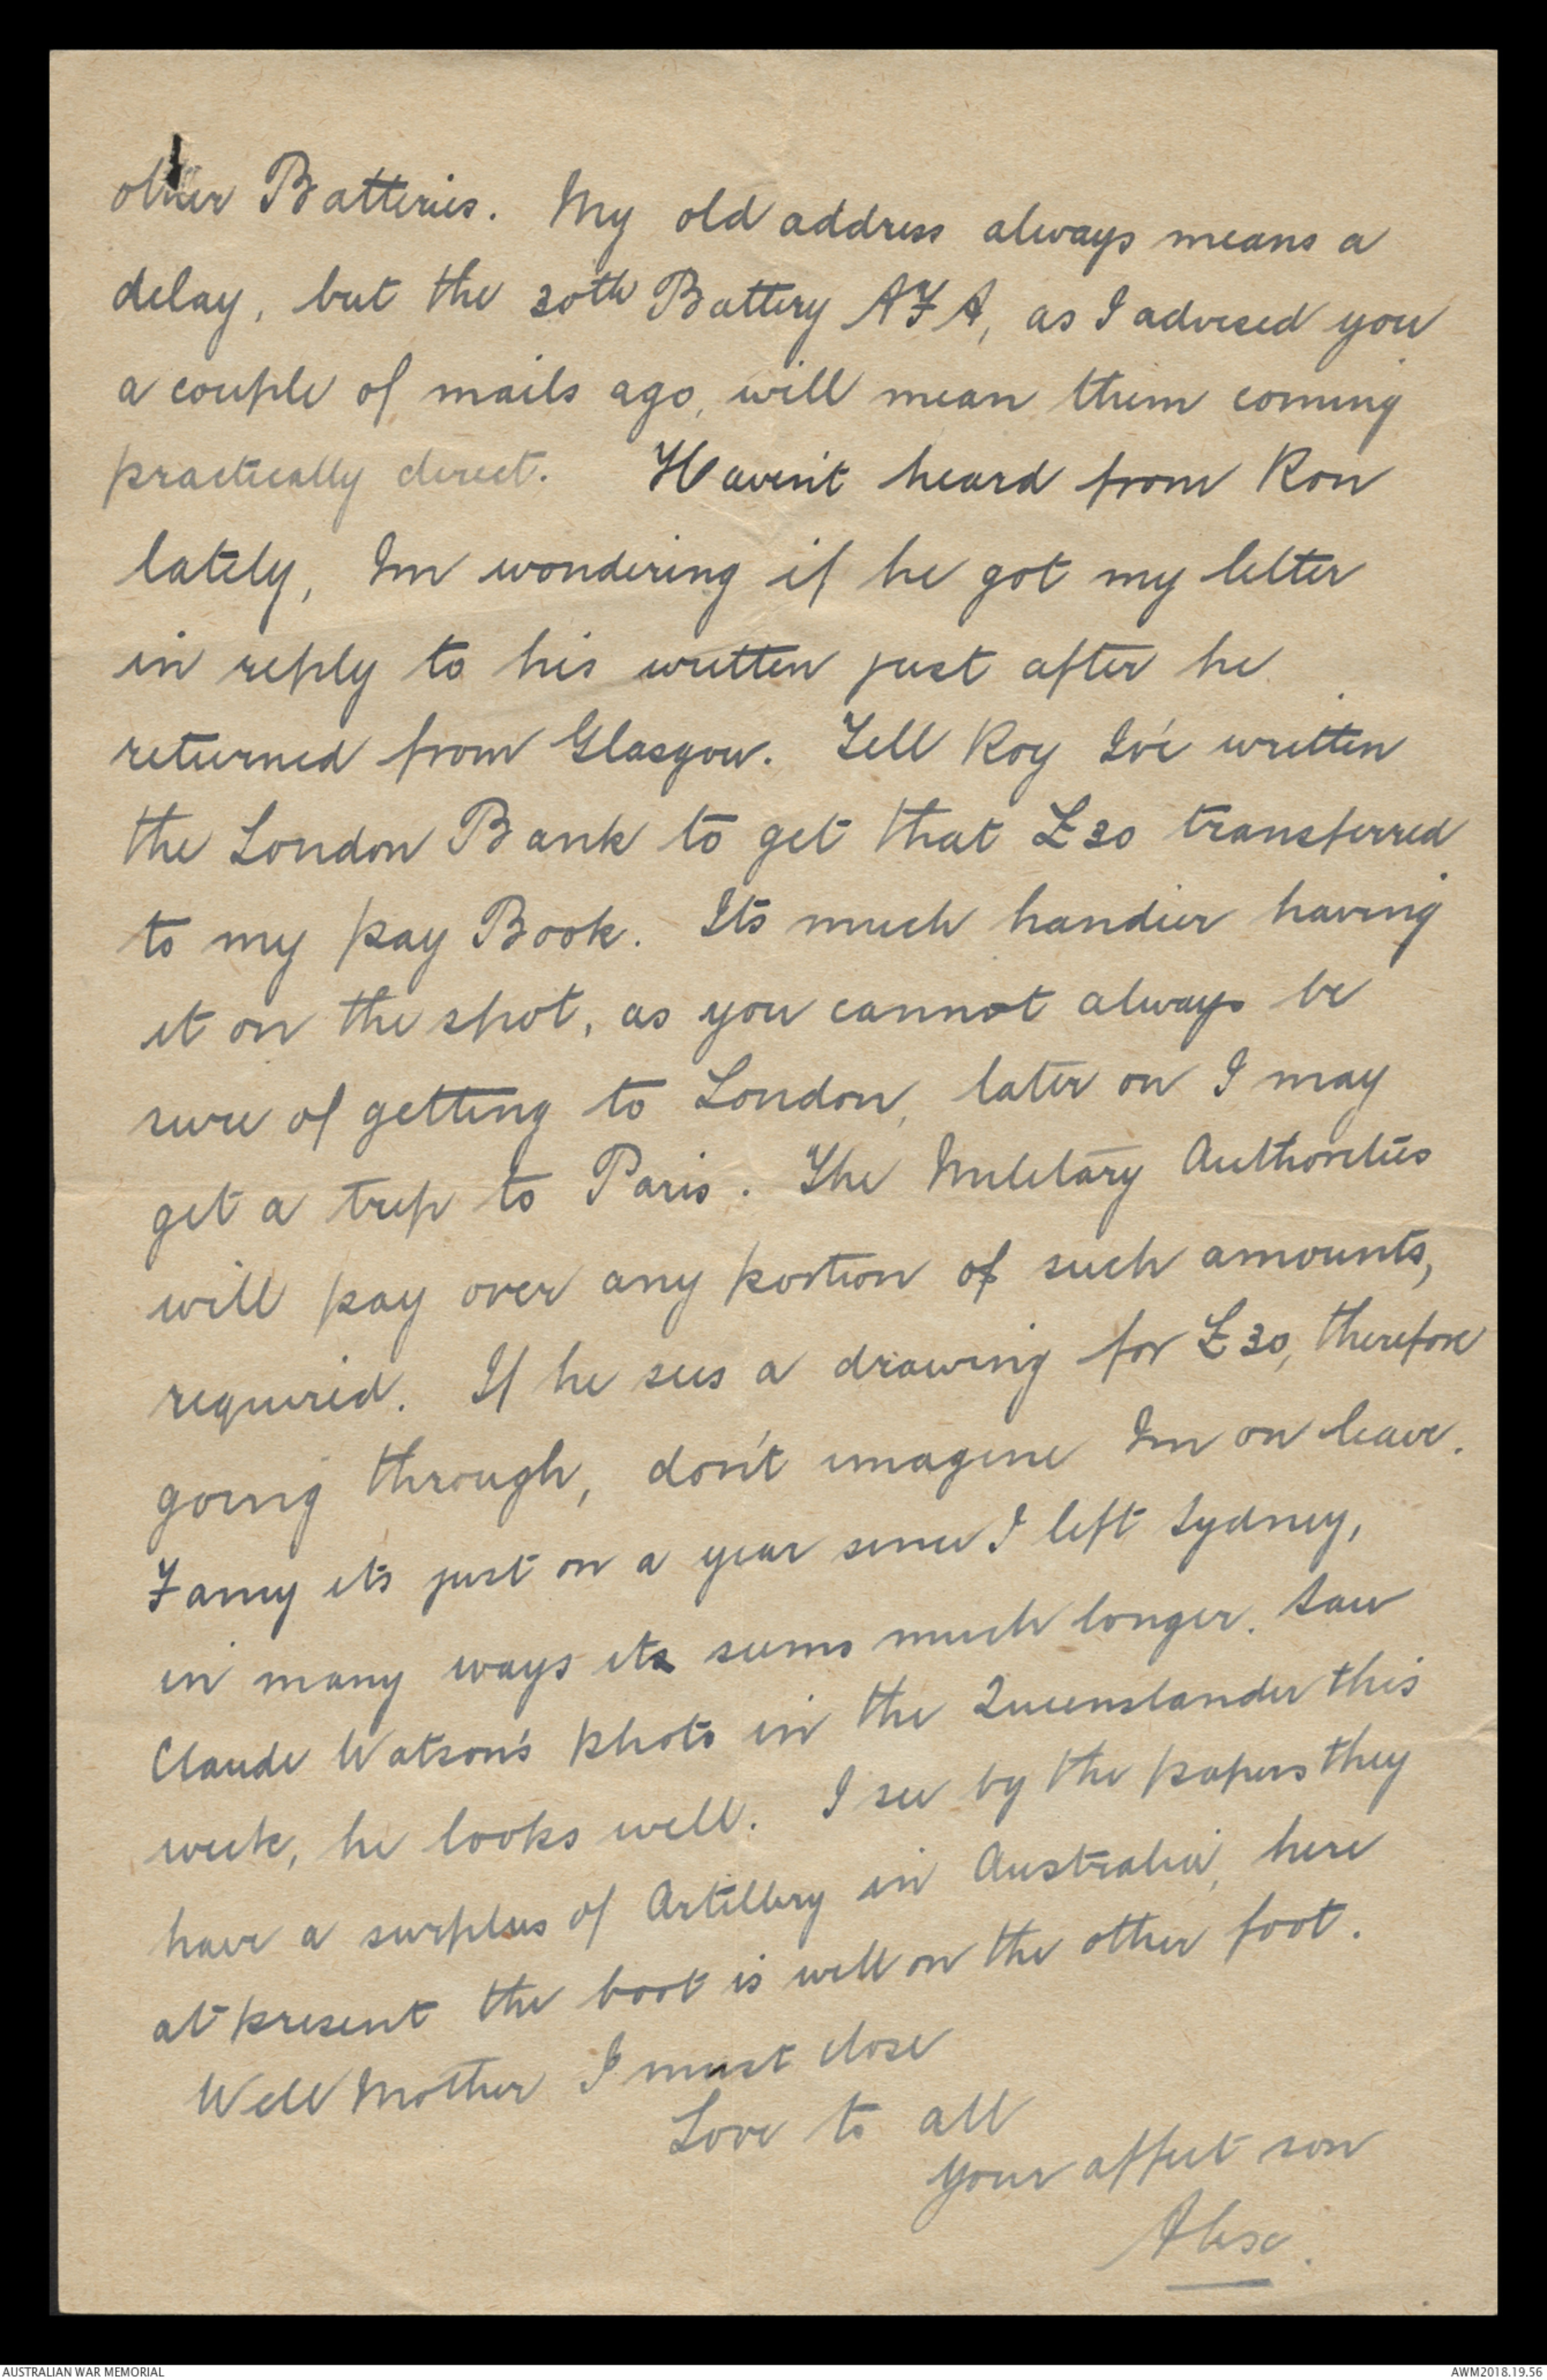 other Batteries. My old address always means a
delay, but the 30th Battery AFA, as I advised you
a couple of mails ago, will mean them coming
practically direct. Haven't heard from Ron
lately, Im wondering if he got my letter
in reply to his written just after he
returned from Glasgow. Tell Roy I've written
the London Bank to get that £30 transferred
to my pay Book. Its much handier having
it on the spot, as you cannot always be
sure of getting to London, later on I may
get a trip to Paris. The Military Authorities
will pay over any portion of such amounts,
required. If he sees a drawing for £30, therefore
going through, don't imagine Im on leave.
Fancy its just on a year since I left Sydney,
in many ways its seems much longer. Saw
Claude Watson's photo in the Queenslander this
week, he looks well. I see by the papers they
have a surplus of Artillery in Australia, here
at present the boot is well on the other foot.
Well Mother I must close
Love to all
Your affect son
Alex.
AUSTRALIAN WAR MEMORIAL
AWM2018.19.56